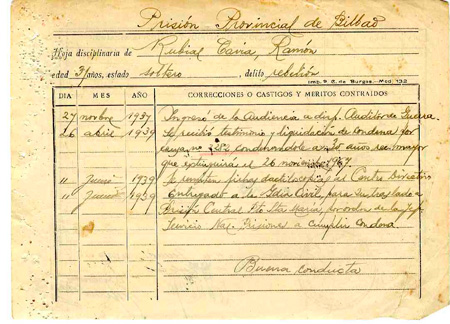 Prisión Provincial de Bilbao
Hoja disciplinaria de Rubial Cavia, Ramón
edad 31 años, estado soltero, delito rebelión
Imp. P. C. de Burgos.-Mod. 132
DIA MES AÑO CORRECCIONES O CASTIGOS Y MERITOS CONTRAIDOS
27 novbre 1937 Ingreso de la Audiencia a disp. Auditor de Guerra
26 abril 1939 Se recibió testimonio y liquidación de condena por
causa nº condenándole a 30 años recl. mayor
que extinguirá el 26 noviembre 1967
" Junio 1939 Se remiten fichas dactiloscópicas al Centro Directivo
" Junio 1939 Entregado a la Gdia Civil, para su traslado a
Prisión Central Pto Sta María, por orden de la Jef.
Servicio Nac. Prisiones a cumplir condena.
Buena conducta